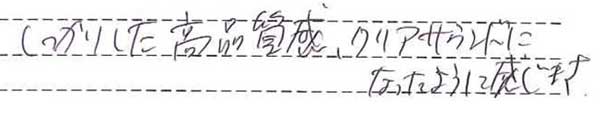 しっかりした高品質感、クリアサウンドに
なったように感じます。